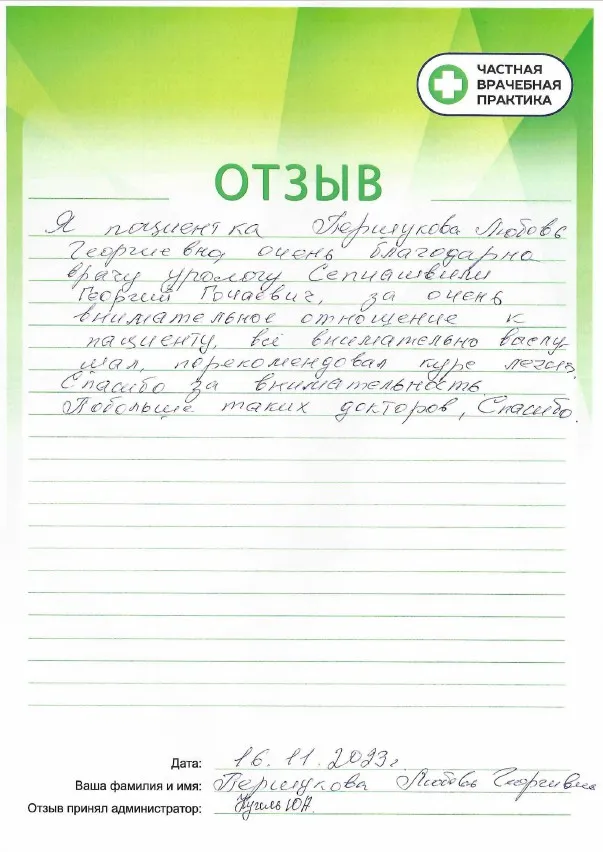 ЧАСТНАЯ
ВРАЧЕБНАЯ
ПРАКТИКА
ОТЗЫВ
Я пациентка Першукова Любовь
Георгиевна очень благодарна
врачу урологу Сепиашвили
Георгий Гочаевич, за очень
внимательное отношение к
пациенту, всё внимательно выслу
шал, порекомендовал курс лечен.
Спасибо за внимательность.
Побольше таких докторов, Спасибо.
Дата: 16.11.2023г.
Ваша фамилия и имя: Першукова Любовь Георгиевна
Отзыв принял администратор: